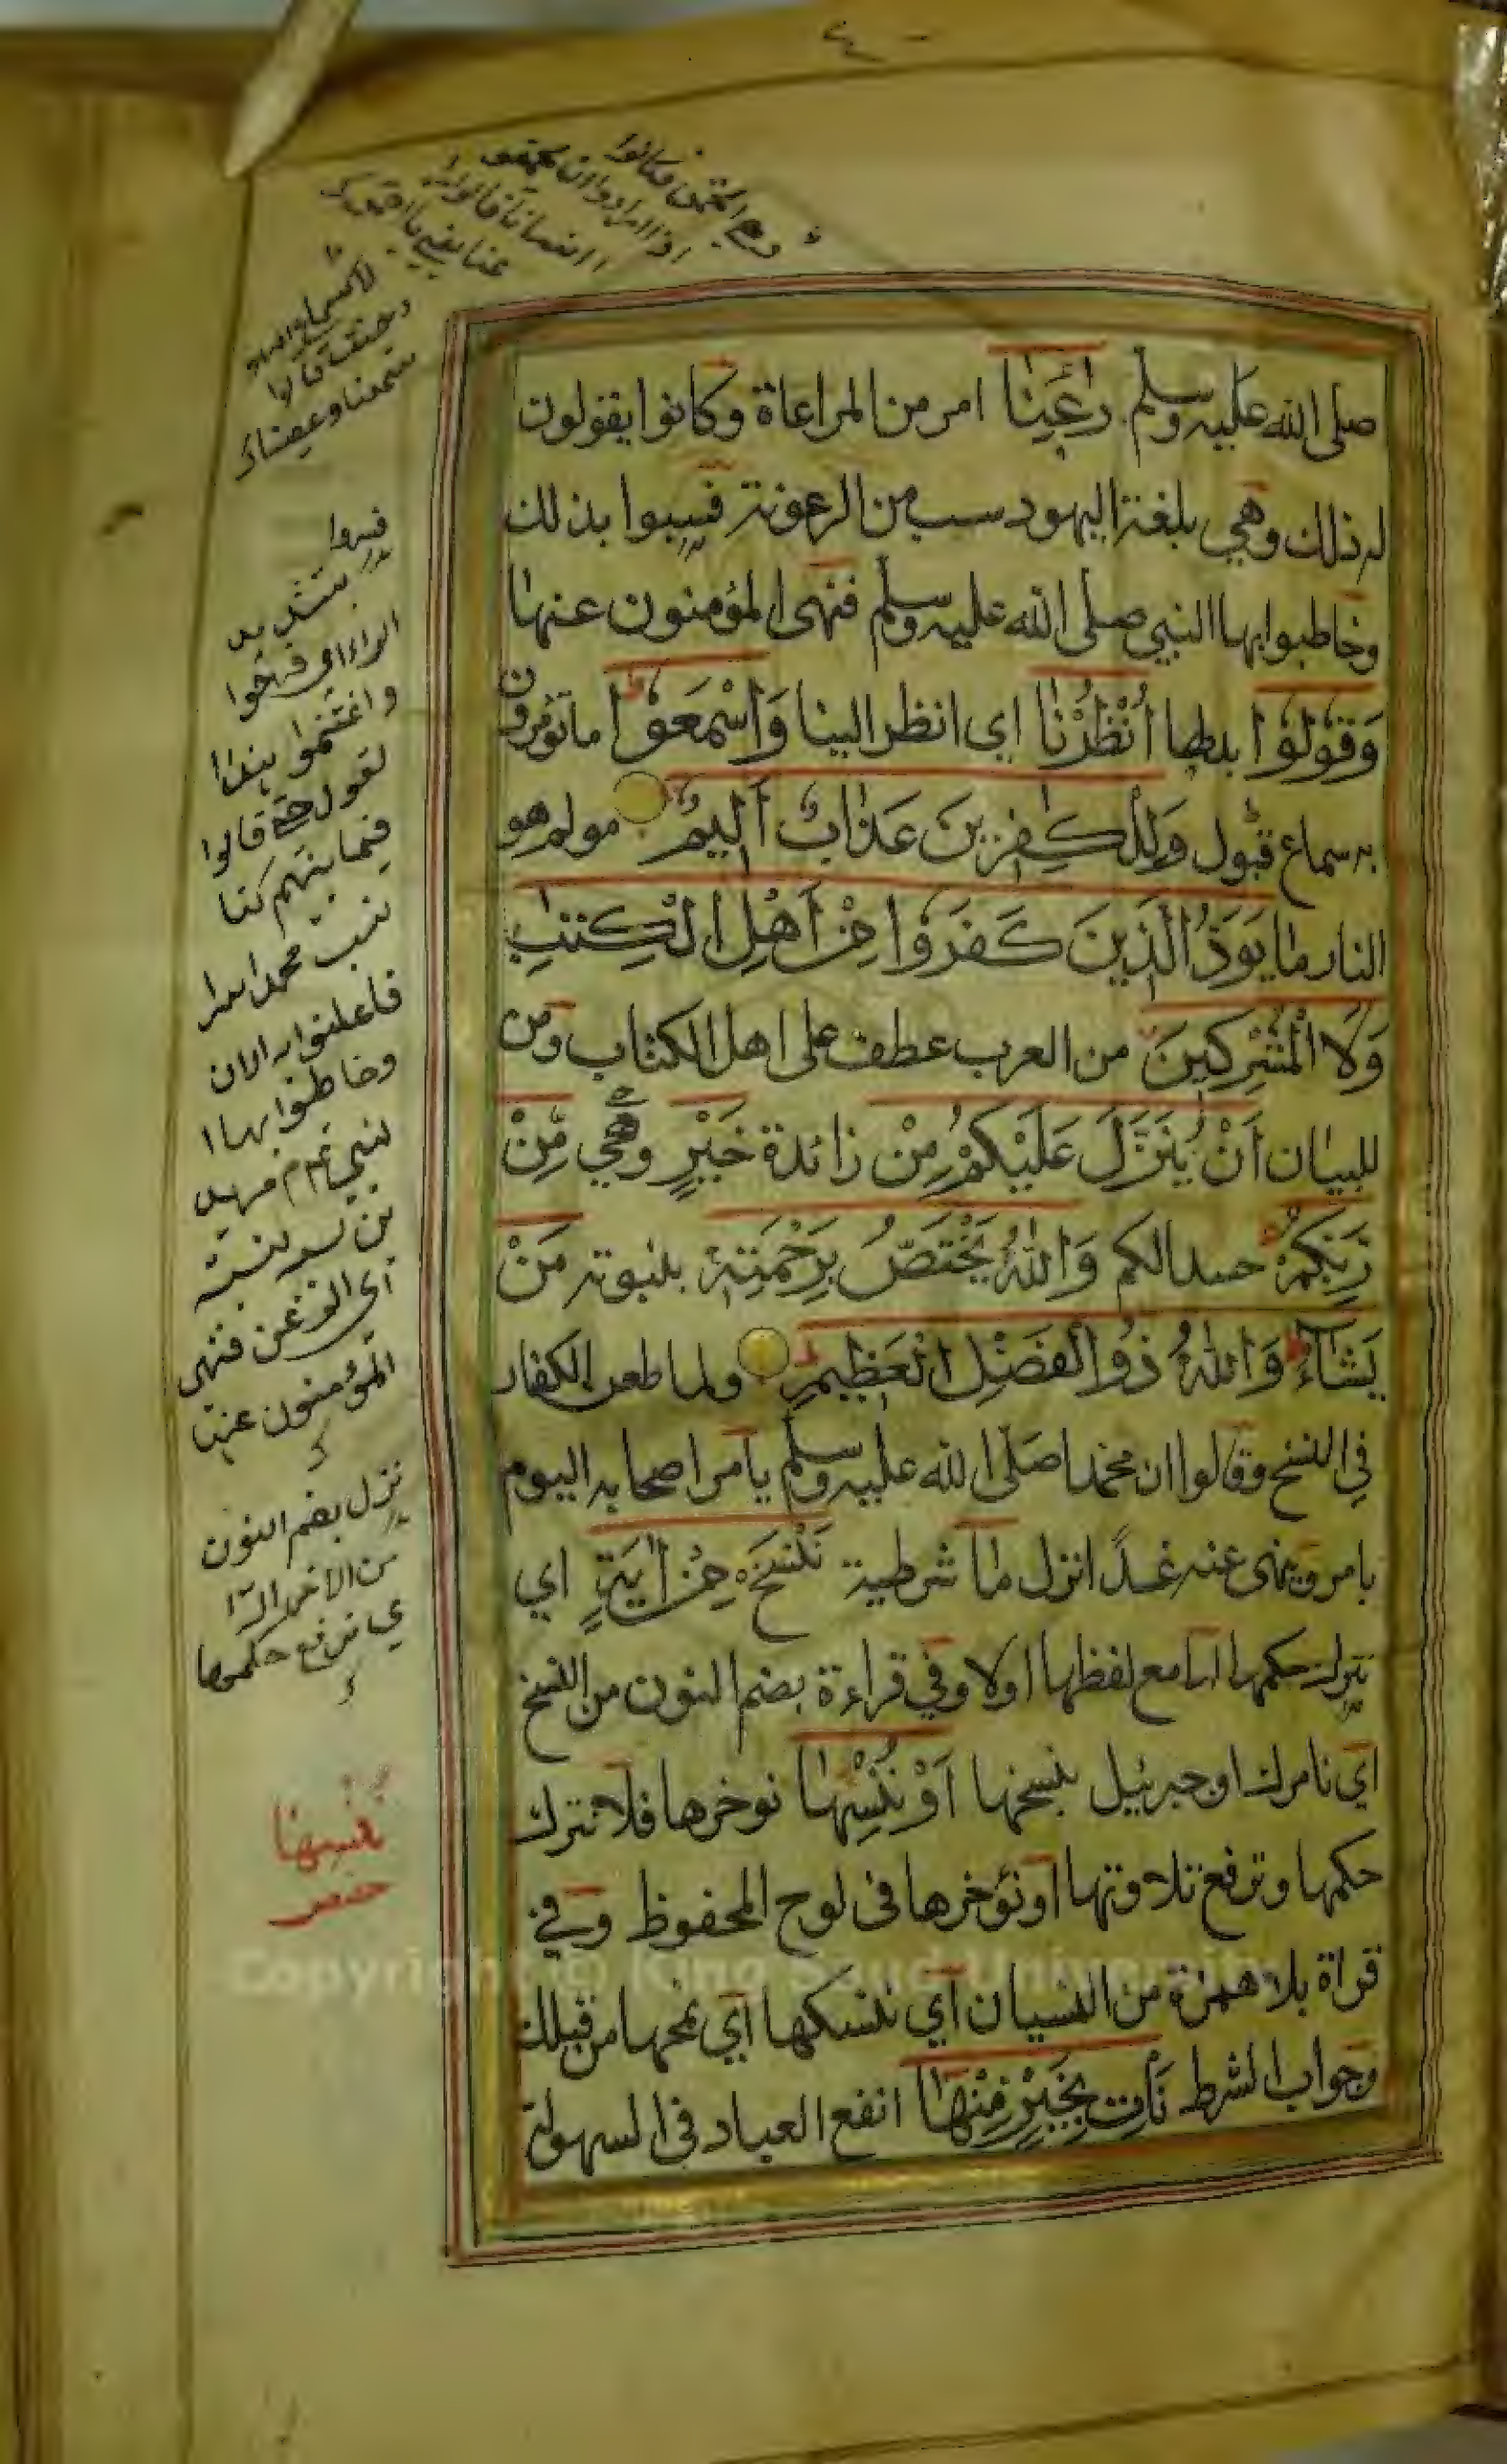 صلى الله عليه وسلم رٰعِنَا امر من المراعاة وكانوا يقولون
له ذلك وهي بلغة اليهود سب من الرعونة فسبوا بذلك
وخاطبوا بها النبي صلى الله عليه وسلم فنهى المؤمنون عنها
وَقُولُوا بدلها انْظُرْنَا اي انظر الينا وَاسْمَعُوْا ما تؤمرون
به سماع قبول وَلِلْكٰفِرِينَ عَذَابٌ أَلِيمٌ مولم هو
النار مَا يَوَدُّ الَّذِينَ كَفَرُوا مِنْ اَهْلِ الْكِتٰبِ
وَلَا الْمُشْرِكِينَ من العرب عطف على اهل الكتاب ومن
للبيان اَنْ يُنَزَّلَ عَلَيْكُمْ مِنْ زائدة خَيْرٍ وحي مِّنْ
رَبِّكُمْ حسدا لكم وَاللّٰهُ يَخْتَصُّ بِرَحْمَتِهٖ بنبوته مَنْ
يَشَآءُ وَاللّٰهُ ذُو الْفَضْلِ الْعَظِيمِ ولما طعن الكفار
في النسخ وقالوا ان محمدا صلى الله عليه وسلم يامر اصحابه اليوم
بامر وينهى عنه غداً انزل مَا شرطية نَنْسَخْ مِنْ اٰيَةٍ اي
نترك حكمها اما مع لفظها اولا وفي قراءة بضم النون من النسخ
اي نامرك او جبرئيل بنسخها اَوْ نُنْسِهَا نوخرها فلا نترك
حكمها ونرفع تلاوتها او نؤخرها في لوح المحفوظ وفي
قراة بلا همزة من النسيان اي ننسكها اي نمحها من قبلك
وجواب الشرط نَأْتِ بِخَيْرٍ مِنْهَا انفع العباد في السهولة
سمعنا وعصينا
بتشديد
الراء اي فرحوا
واغتنموا
قالوا
فيما بينهم كنا
نسب محمدا سرا
فاعلنوا الان
وخاطبوا بها
المؤمنون عنها
ننزل بضم النون
نرفع حكمها
ننسها